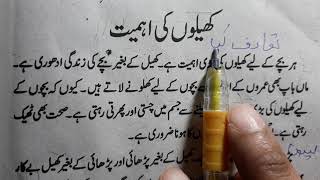 کھیلوں کی اہمیت
تعارف
ہر بچے کے لیے کھیلوں کی اہمیت ہے۔ کھیل کے بغیر بچے کی زندگی ادھوری ہے۔
ماں باپ بھی عمروں کے بچوں کے لیے کھلونے لاتے ہیں۔ کیوں کہ بچوں کے
سے جسم میں چستی اور پھرتی رہتی ہے۔ صحت بھی ٹھیک
رہتی ہے۔ کا ہونا ضروری ہے۔
کھیل کے بغیر پڑھائی اور پڑھائی کے بغیر کھیل بے کار